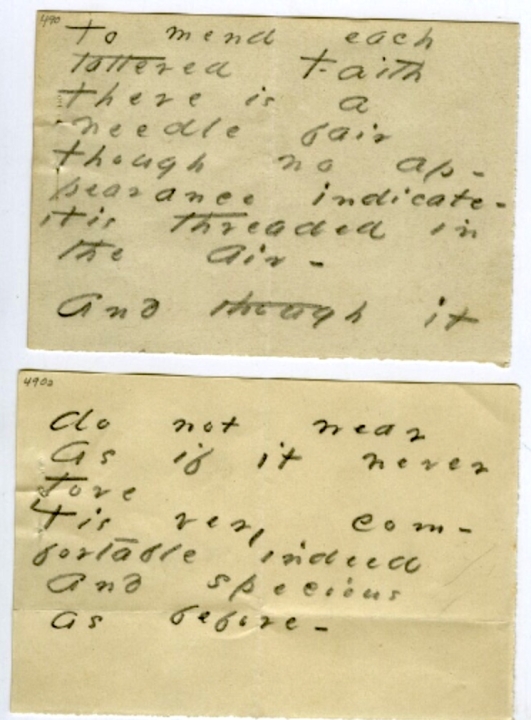 490
To mend each
tattered Faith
there is a
needle fair
though no ap-
pearance indicate-
itis threaded in
the Air-
And though it
490a
do not wear
As if it never
Tore
Tis very com-
fortable indeed
And specious
as before-